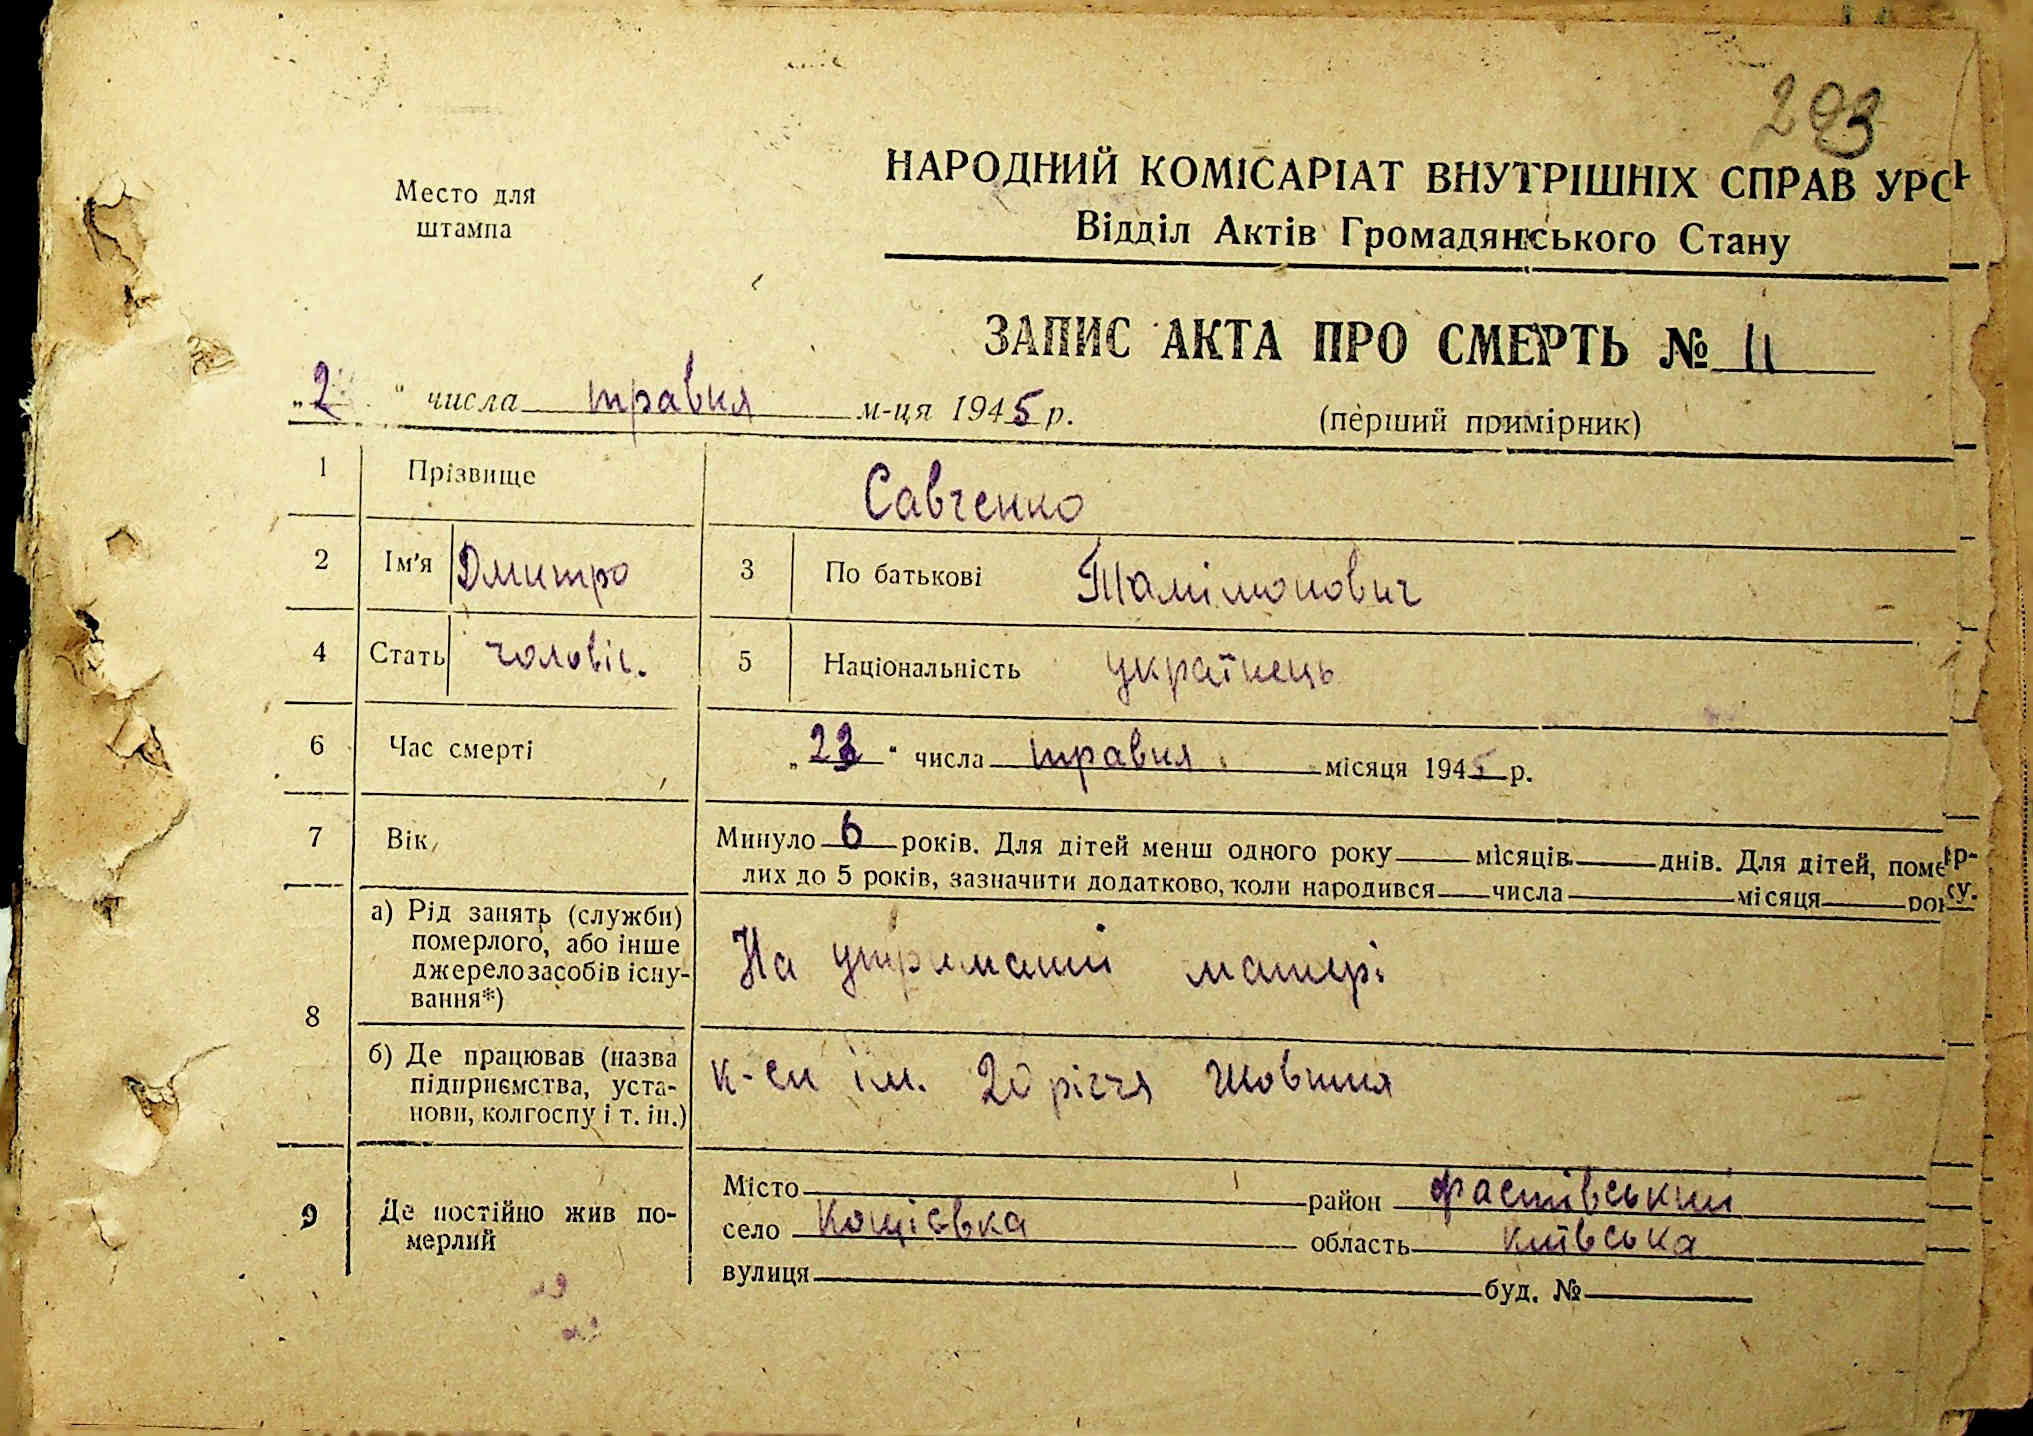 293
Место для
штампа
НАРОДНИЙ КОМІСАРІАТ ВНУТРІШНІХ СПРАВ УРСР
Відділ Актів Громадянського Стану
ЗАПИС АКТА ПРО СМЕРТЬ № 11
„2 “ числа травня м-ця 1945 р.
(перший примірник)
1 Прізвище Савченко
2 Ім'я Дмитро 3 По батькові
4 Стать чоловіч. 5 Національність українець
6 Час смерті „ “ числа травня місяця 1945 р.
7 Вік Минуло 6 років. Для дітей менш одного року місяців днів. Для дітей, помер-
лих до 5 років, зазначити додатково, коли народився числа місяця
8 а) Рід занять (служби)
померлого, або інше
джерело засобів існу-
вання*)
На утриманні матері
б) Де працював (назва
підприємства, уста-
нови, колгоспу і т. ін.)
к-сп ім. 20 річчя Жовтня
9 Де постійно жив по-
мерлий
Місто район Фастівський
село Кощіївка область київська
вулиця буд. №